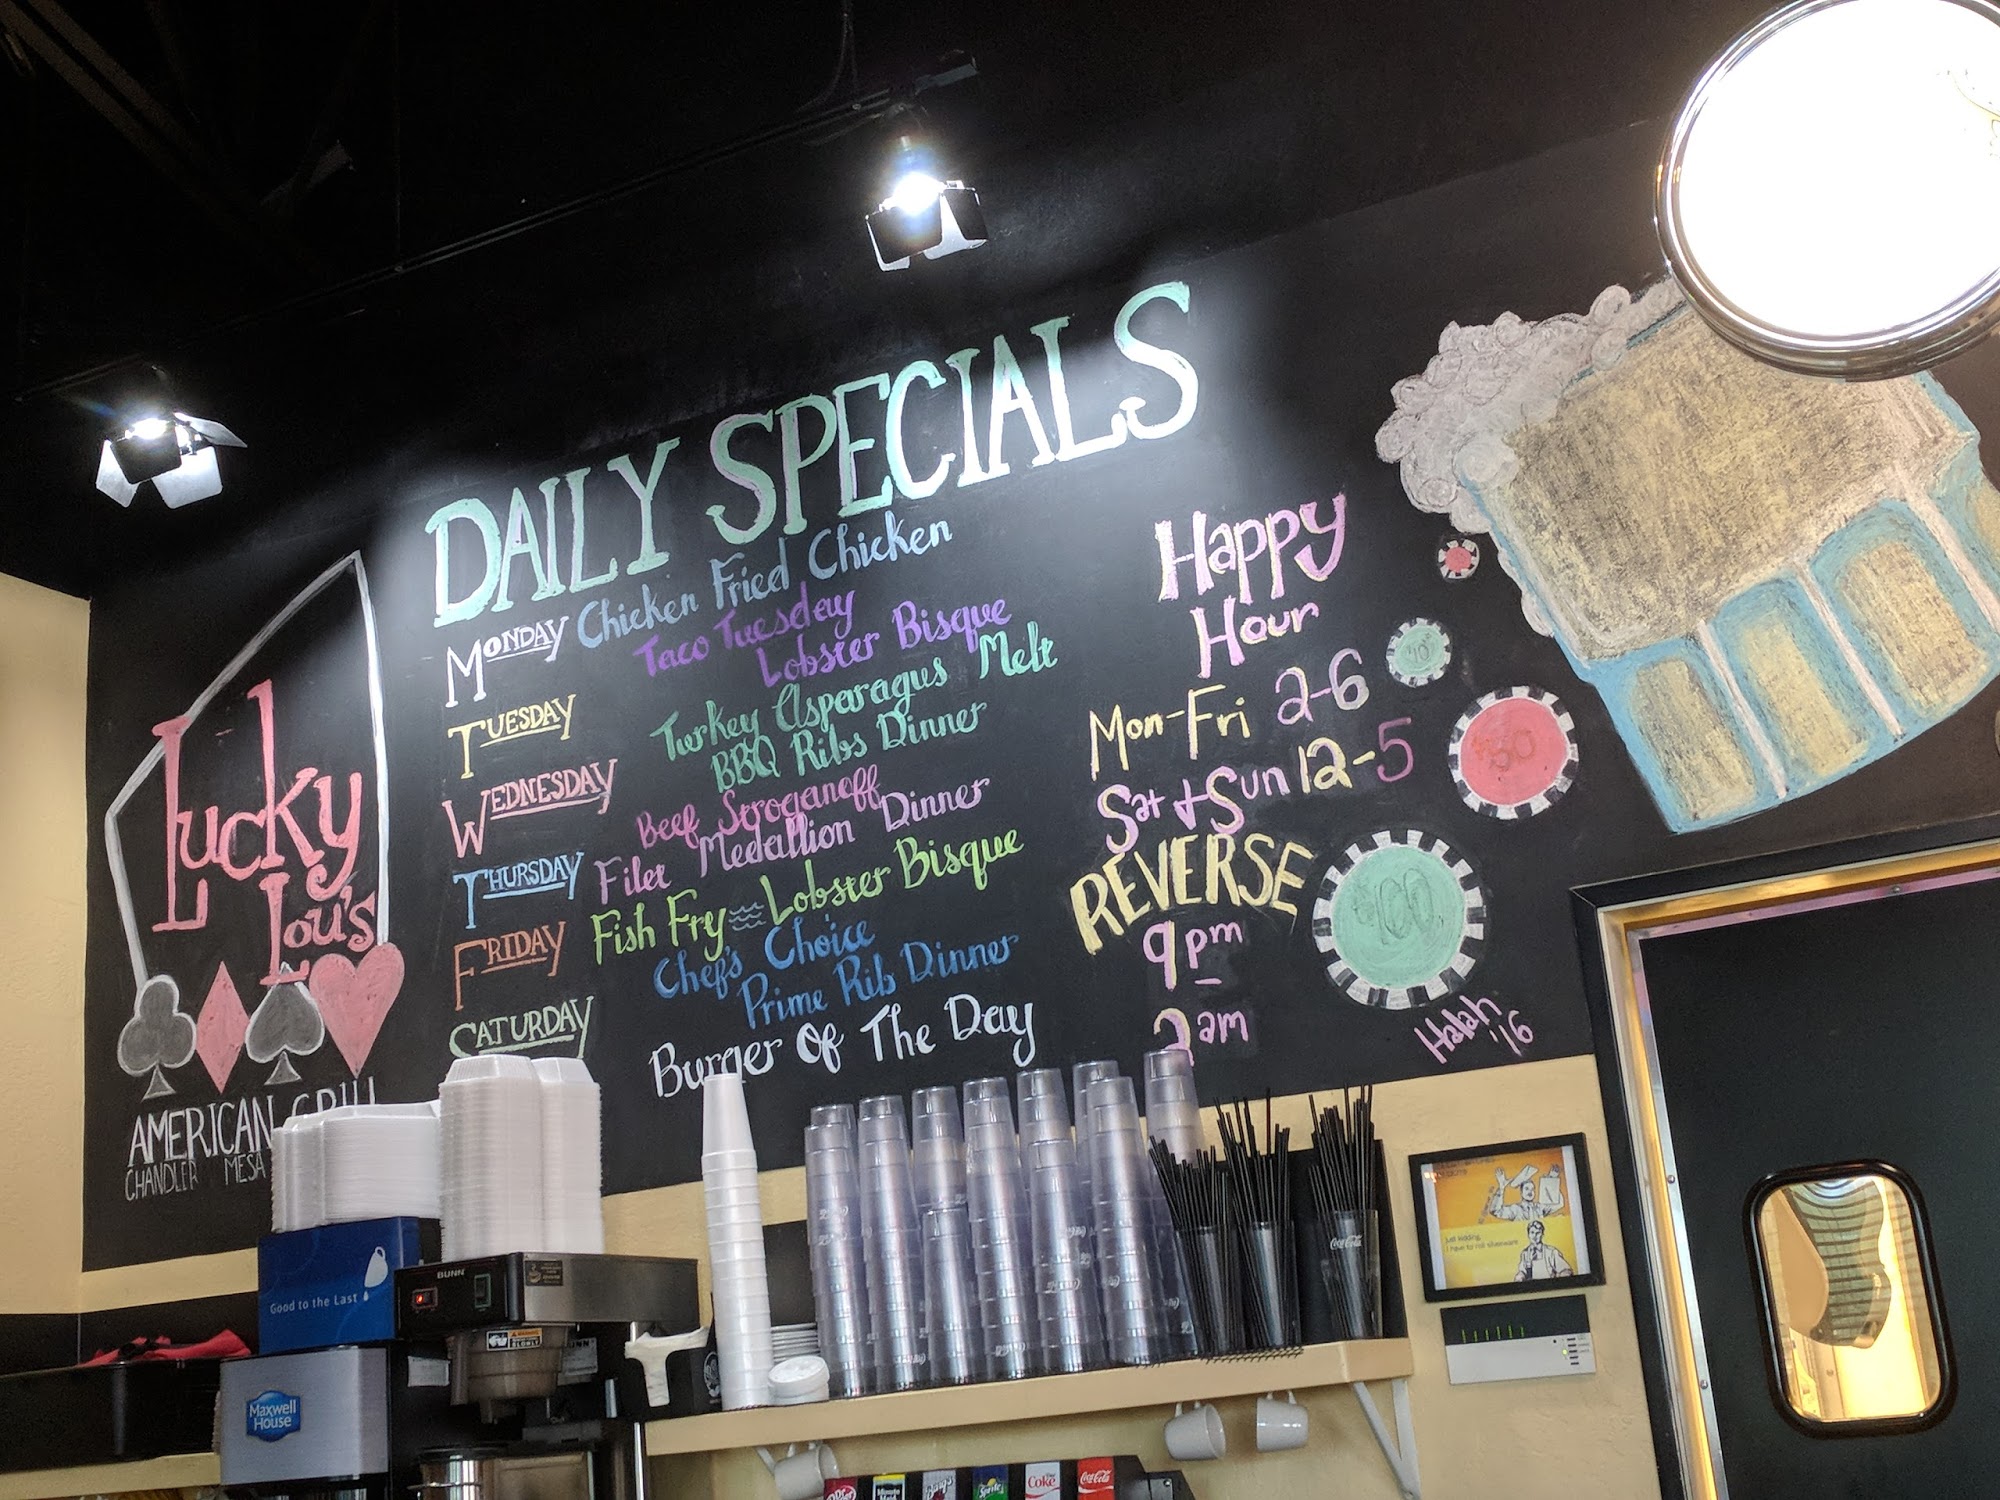 DAILY SPECIALS
MONDAY Chicken Fried Chicken
Taco Tuesday
TUESDAY Lobster Bisque
Turkey Asparagus Melt
WEDNESDAY BBQ Ribs Dinner
Beef Stroganoff
THURSDAY Filet Medallion Dinner
FRIDAY Fish Fry Lobster Bisque
Chef's Choice
SATURDAY Prime Rib Dinner
Burger Of The Day
Happy
Hour
Mon-Fri 2-6
Sat & Sun 12-5
REVERSE
9pm
2am
$50
$100
Halah
'16
Lucky
Lou's
AMERICAN GRILL
CHANDLER MESA
BUNN
Good to the Last
Maxwell
House
Coca-Cola
just kidding,
i have to roll silverware
Dr Pepper
Minute Maid
Barq's
Sprite
Diet
Coke
Coca-Cola